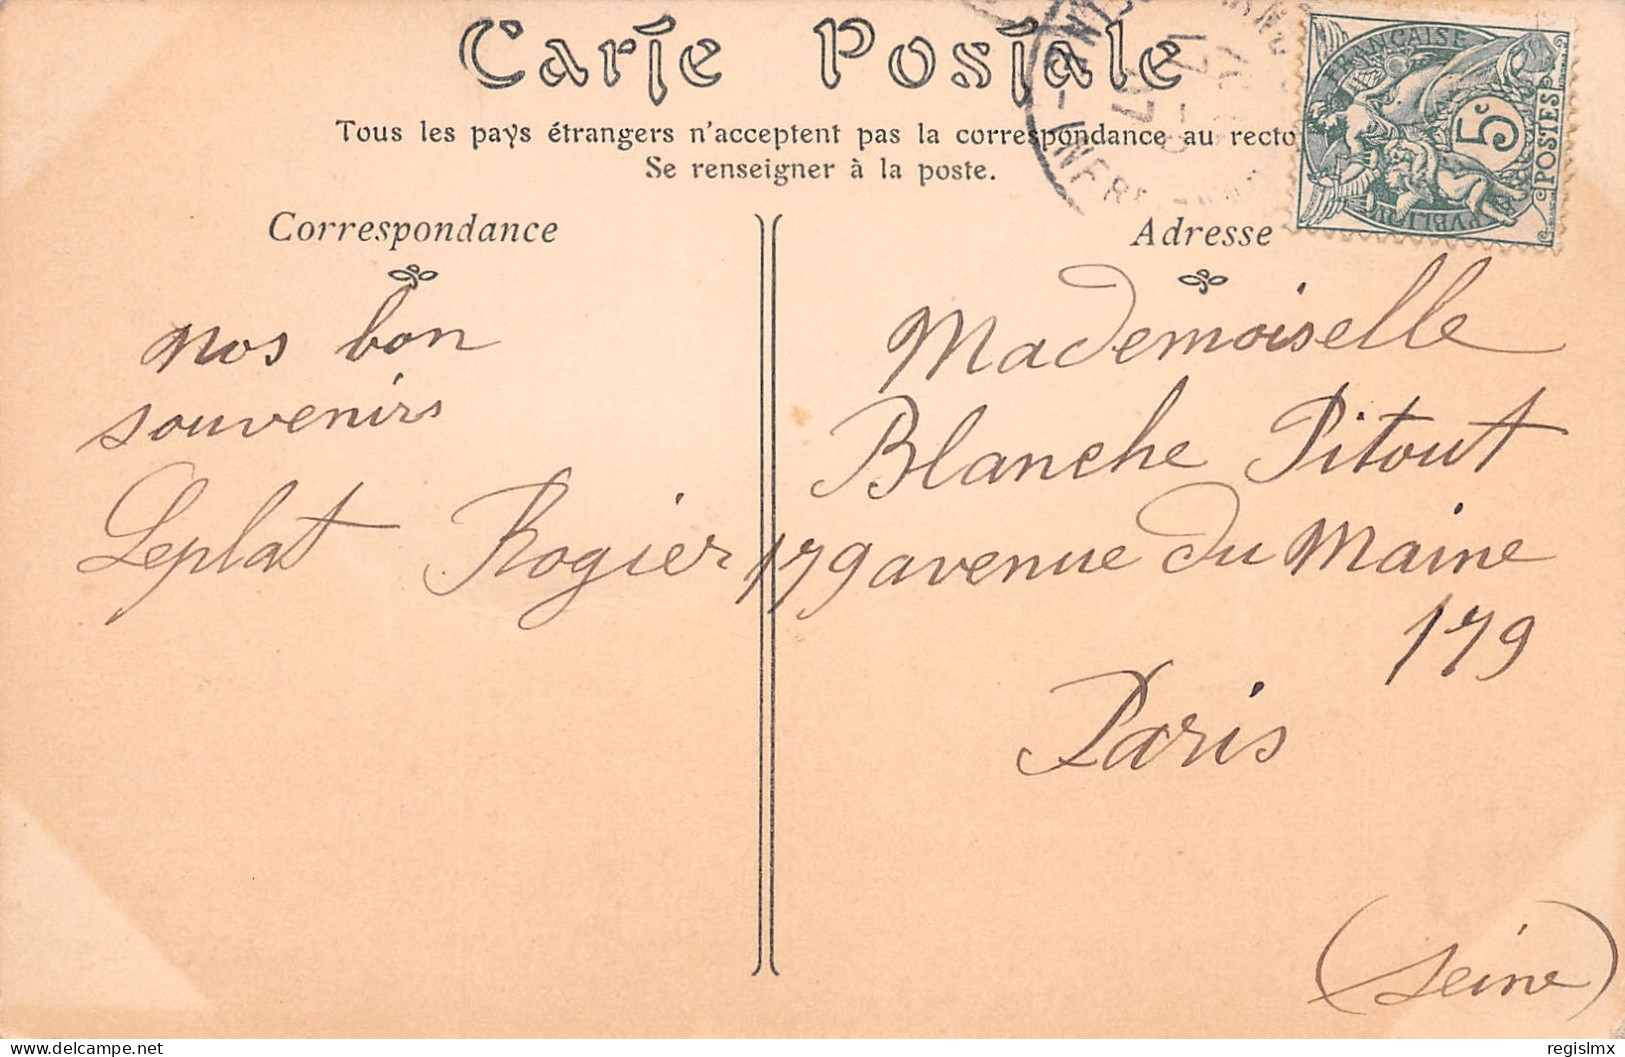 Carte Postale
Tous les pays étrangers n'acceptent pas la correspondance au recto
Se renseigner à la poste.
RÉPUBLIQUE FRANÇAISE
5c
POSTES
Correspondance
nos bon
souvenirs
Leplat Rogier
Adresse
Mademoiselle
Blanche Pitout
179 avenue du Maine
179
Paris
(Seine)
regislmx